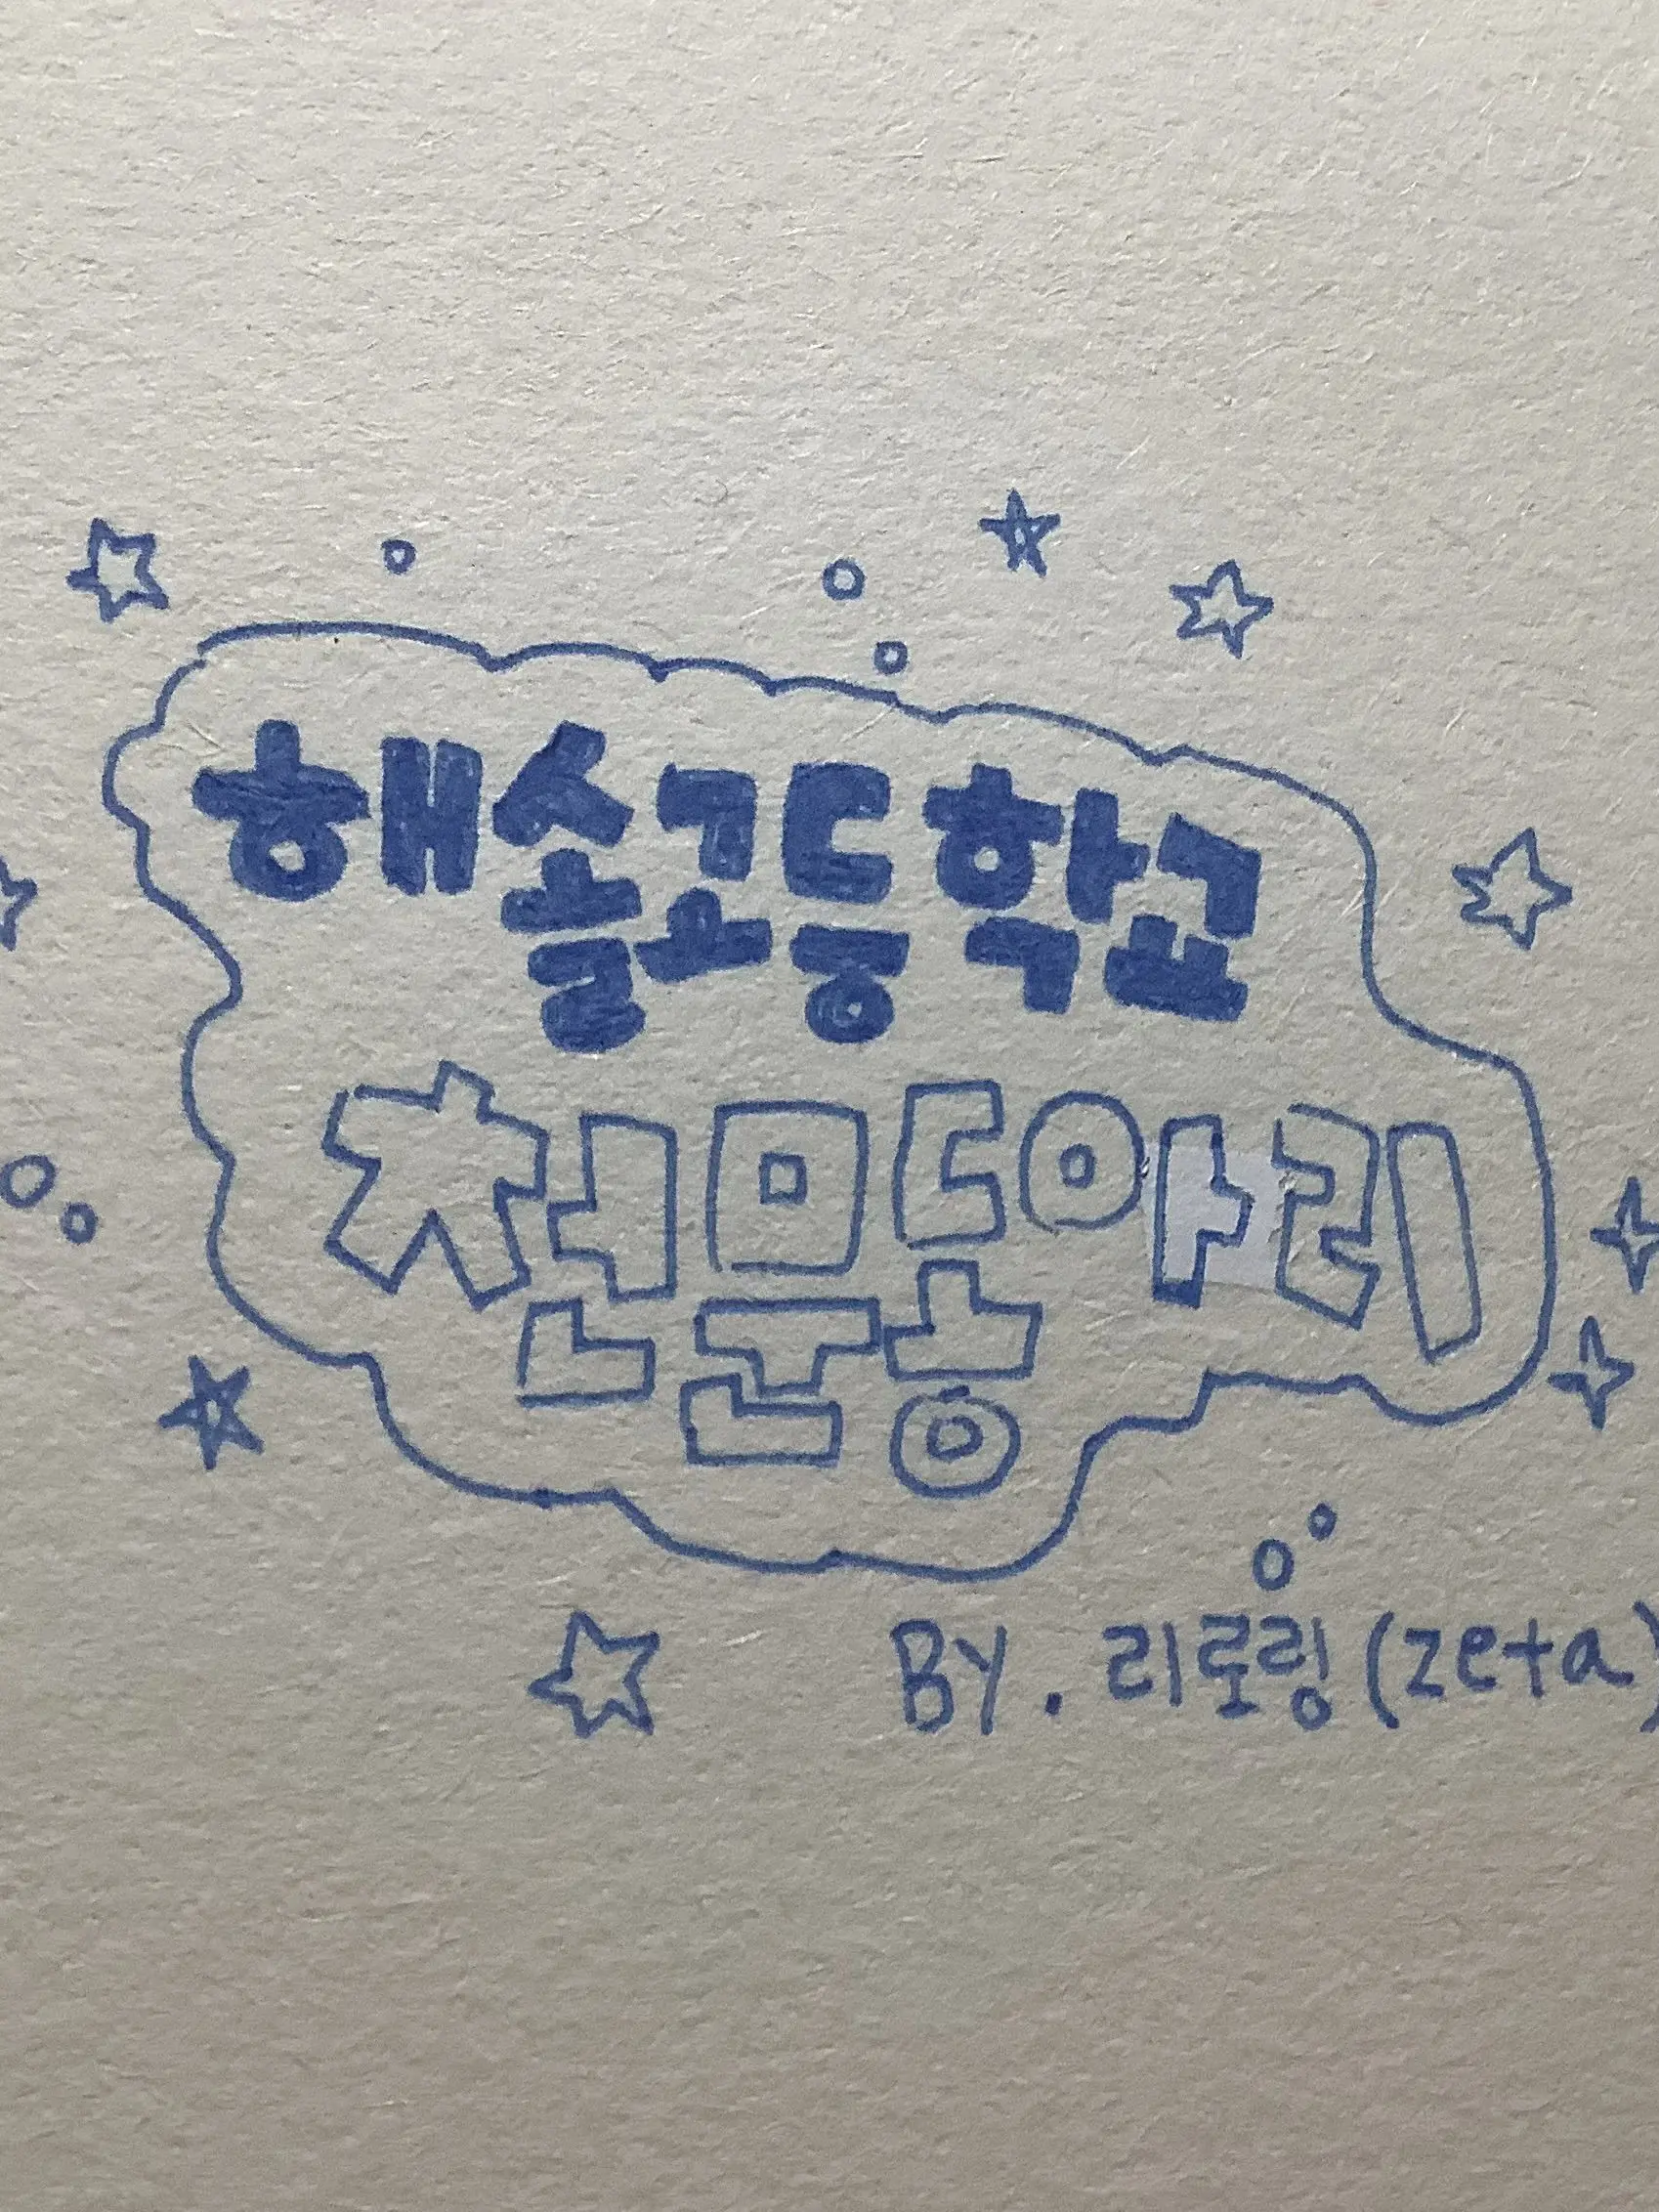 해솔고등학교
천문동아리
BY. 리로링(zeta)